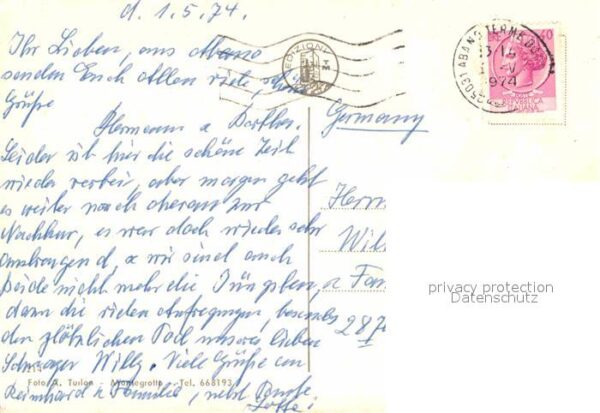 d. 1.5.74.
Ihr Lieben, aus Abano
senden Euch Allen viele, schöne
Grüße
Hermann u Dorthe.
Leider ist hier die schöne Zeit
wieder vorbei, aber morgen geht
es weiter nach zur
Nachkur, es war doch wieder sehr
anstrengend, u wir sind auch
beide nicht mehr die Jüngsten,
dann die vielen Aufregungen, besonders
den plötzlichen Tod unseres lieben
Schwager Willy. Viele Grüße an
Reinhard u Familie, nebst
Lotte!
Germany
Herrn
Wil
u Fam
287
EDIZIONI
TM
35031 ABANO TERME
1974
40
POSTE
REPVBBLICA
ITALIANA
Foto A. Turlon - Montegrotto - Tel. 668193
privacy protection
Datenschutz